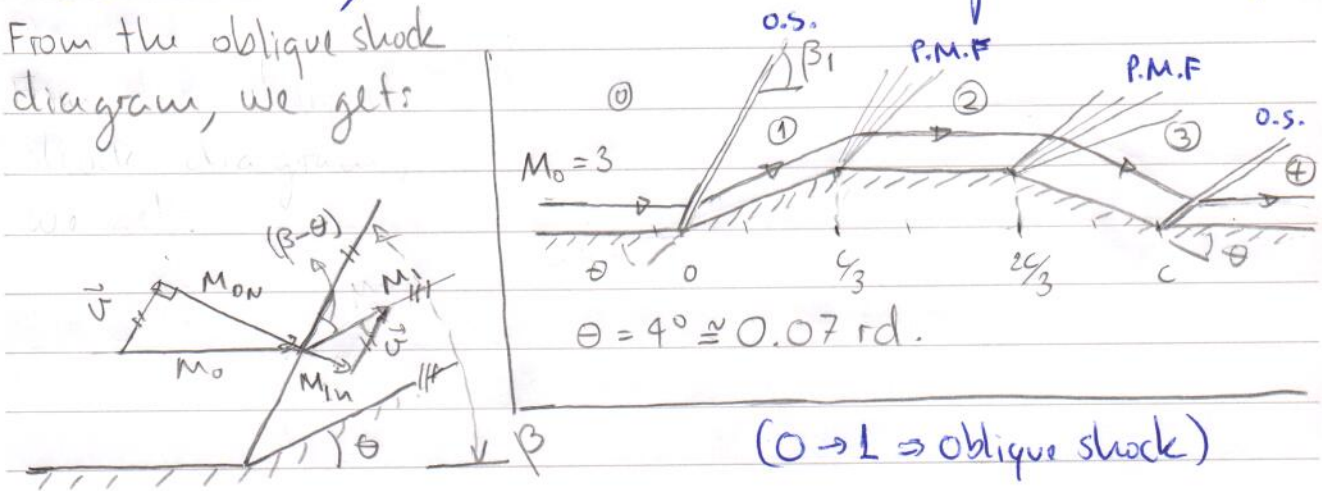 From the oblique shock
diagram, we get:
(β-θ)
M₀N
v⃗
M₀
M₁
v⃗
M₁n
θ
β
O.S.
β₁
P.M.F
P.M.F
O.S.
⓪
①
②
③
④
M₀ = 3
θ
0
c/3
2c/3
c
θ
θ = 4° ≅ 0.07 rd.
(0→1 ⇒ oblique shock)